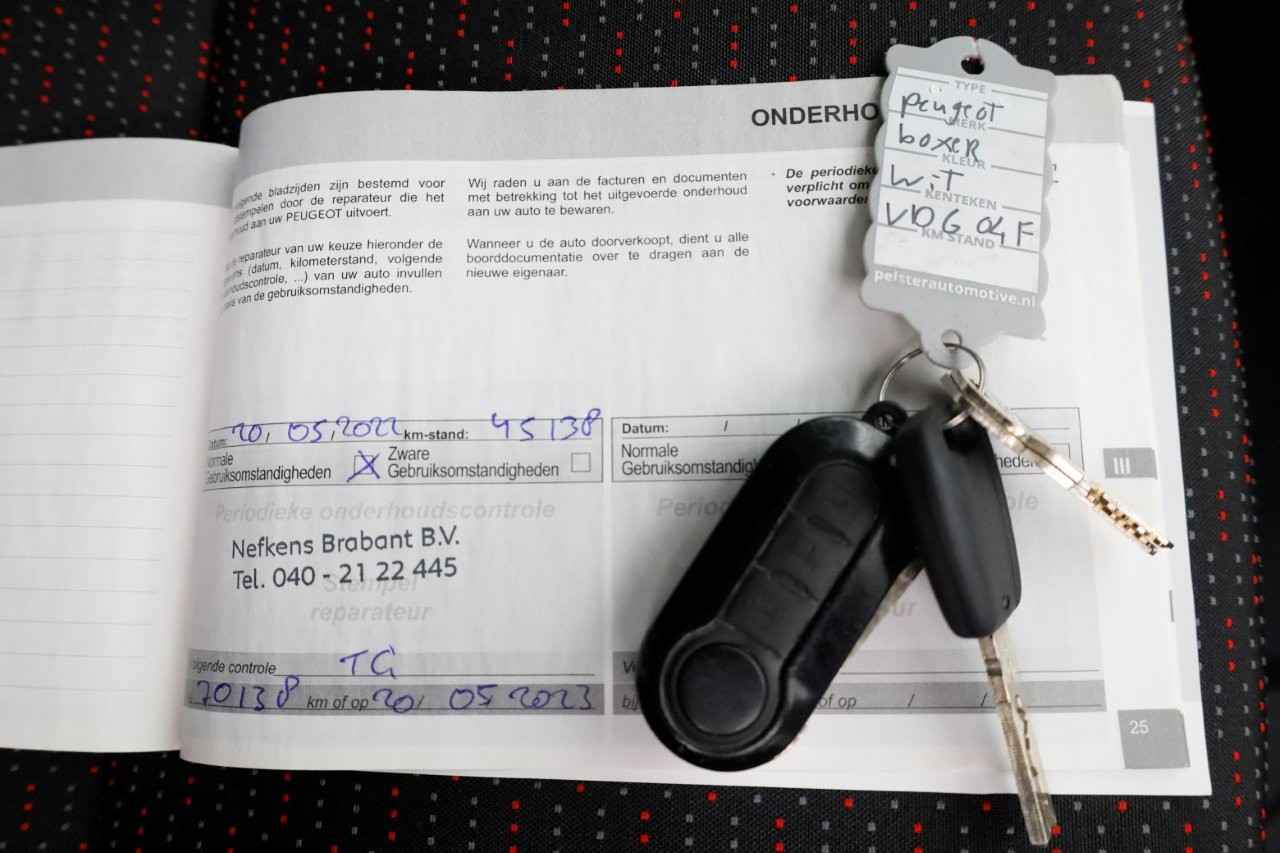 ONDERHO
bladzijden zijn bestemd voor
door de reparateur die het
aan uw PEUGEOT uitvoert.
reparateur van uw keuze hieronder de
(datum, kilometerstand, volgende
, ...) van uw auto invullen
van de gebruiksomstandigheden.
Wij raden u aan de facturen en documenten
met betrekking tot het uitgevoerde onderhoud
aan uw auto te bewaren.
Wanneer u de auto doorverkoopt, dient u alle
boorddocumentatie over te dragen aan de
nieuwe eigenaar.
· De periodieke
verplicht om
voorwaarden
TYPE
peugeot
MERK
boxer
KLEUR
wit
KENTEKEN
VDG 04 F
KM STAND
pelsterautomotive.nl
Datum: 20, 05, 2022 km-stand: 45138
Normale
Gebruiksomstandigheden
Zware
Gebruiksomstandigheden
Periodieke onderhoudscontrole
Nefkens Brabant B.V.
Tel. 040 - 21 22 445
Stempel
reparateur
controle TG
70138 km of op 20/ 05 2023
Datum: / /
Normale
III
of op / /
25